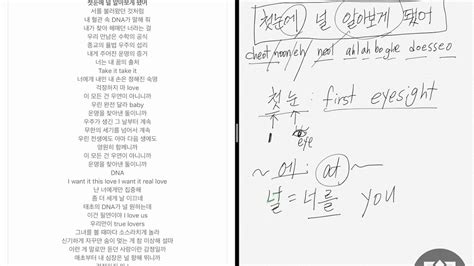 첫눈에 널 알아보게 됐어
서롤 불러왔던 것처럼
내 혈관 속 DNA가 말해 줘
내가 찾아 헤매던 너라는 걸
우리 만남은 수학의 공식
종교의 율법 우주의 섭리
내게 주어진 운명의 증거
너는 내 꿈의 출처
Take it take it
너에게 내민 내 손은 정해진 숙명
걱정하지 마 love
이 모든 건 우연이 아니니까
우린 완전 달라 baby
운명을 찾아낸 둘이니까
우주가 생긴 그 날부터 계속
무한의 세기를 넘어서 계속
우린 전생에도 아마 다음 생에도
영원히 함께니까
이 모든 건 우연이 아니니까
운명을 찾아낸 둘이니까
DNA
I want it this love I want it real love
난 너에게만 집중해
좀 더 세게 날 이끄네
태초의 DNA가 널 원하는데
이건 필연이야 I love us
우리만이 true lovers
그녀를 볼 때마다 소스라치게 놀라
신기하게 자꾸만 숨이 멎는 게 참 이상해 설마
이런 게 말로만 듣던 사랑이란 감정일까
애초부터 내 심장은 널 향해 뛰니까
첫눈에 널 알아보게 됐어
cheot noon eh neol ahlah boghe doesseo
첫눈 : first eyesight
eye
~ 에 : at ~
널 = 너를 you